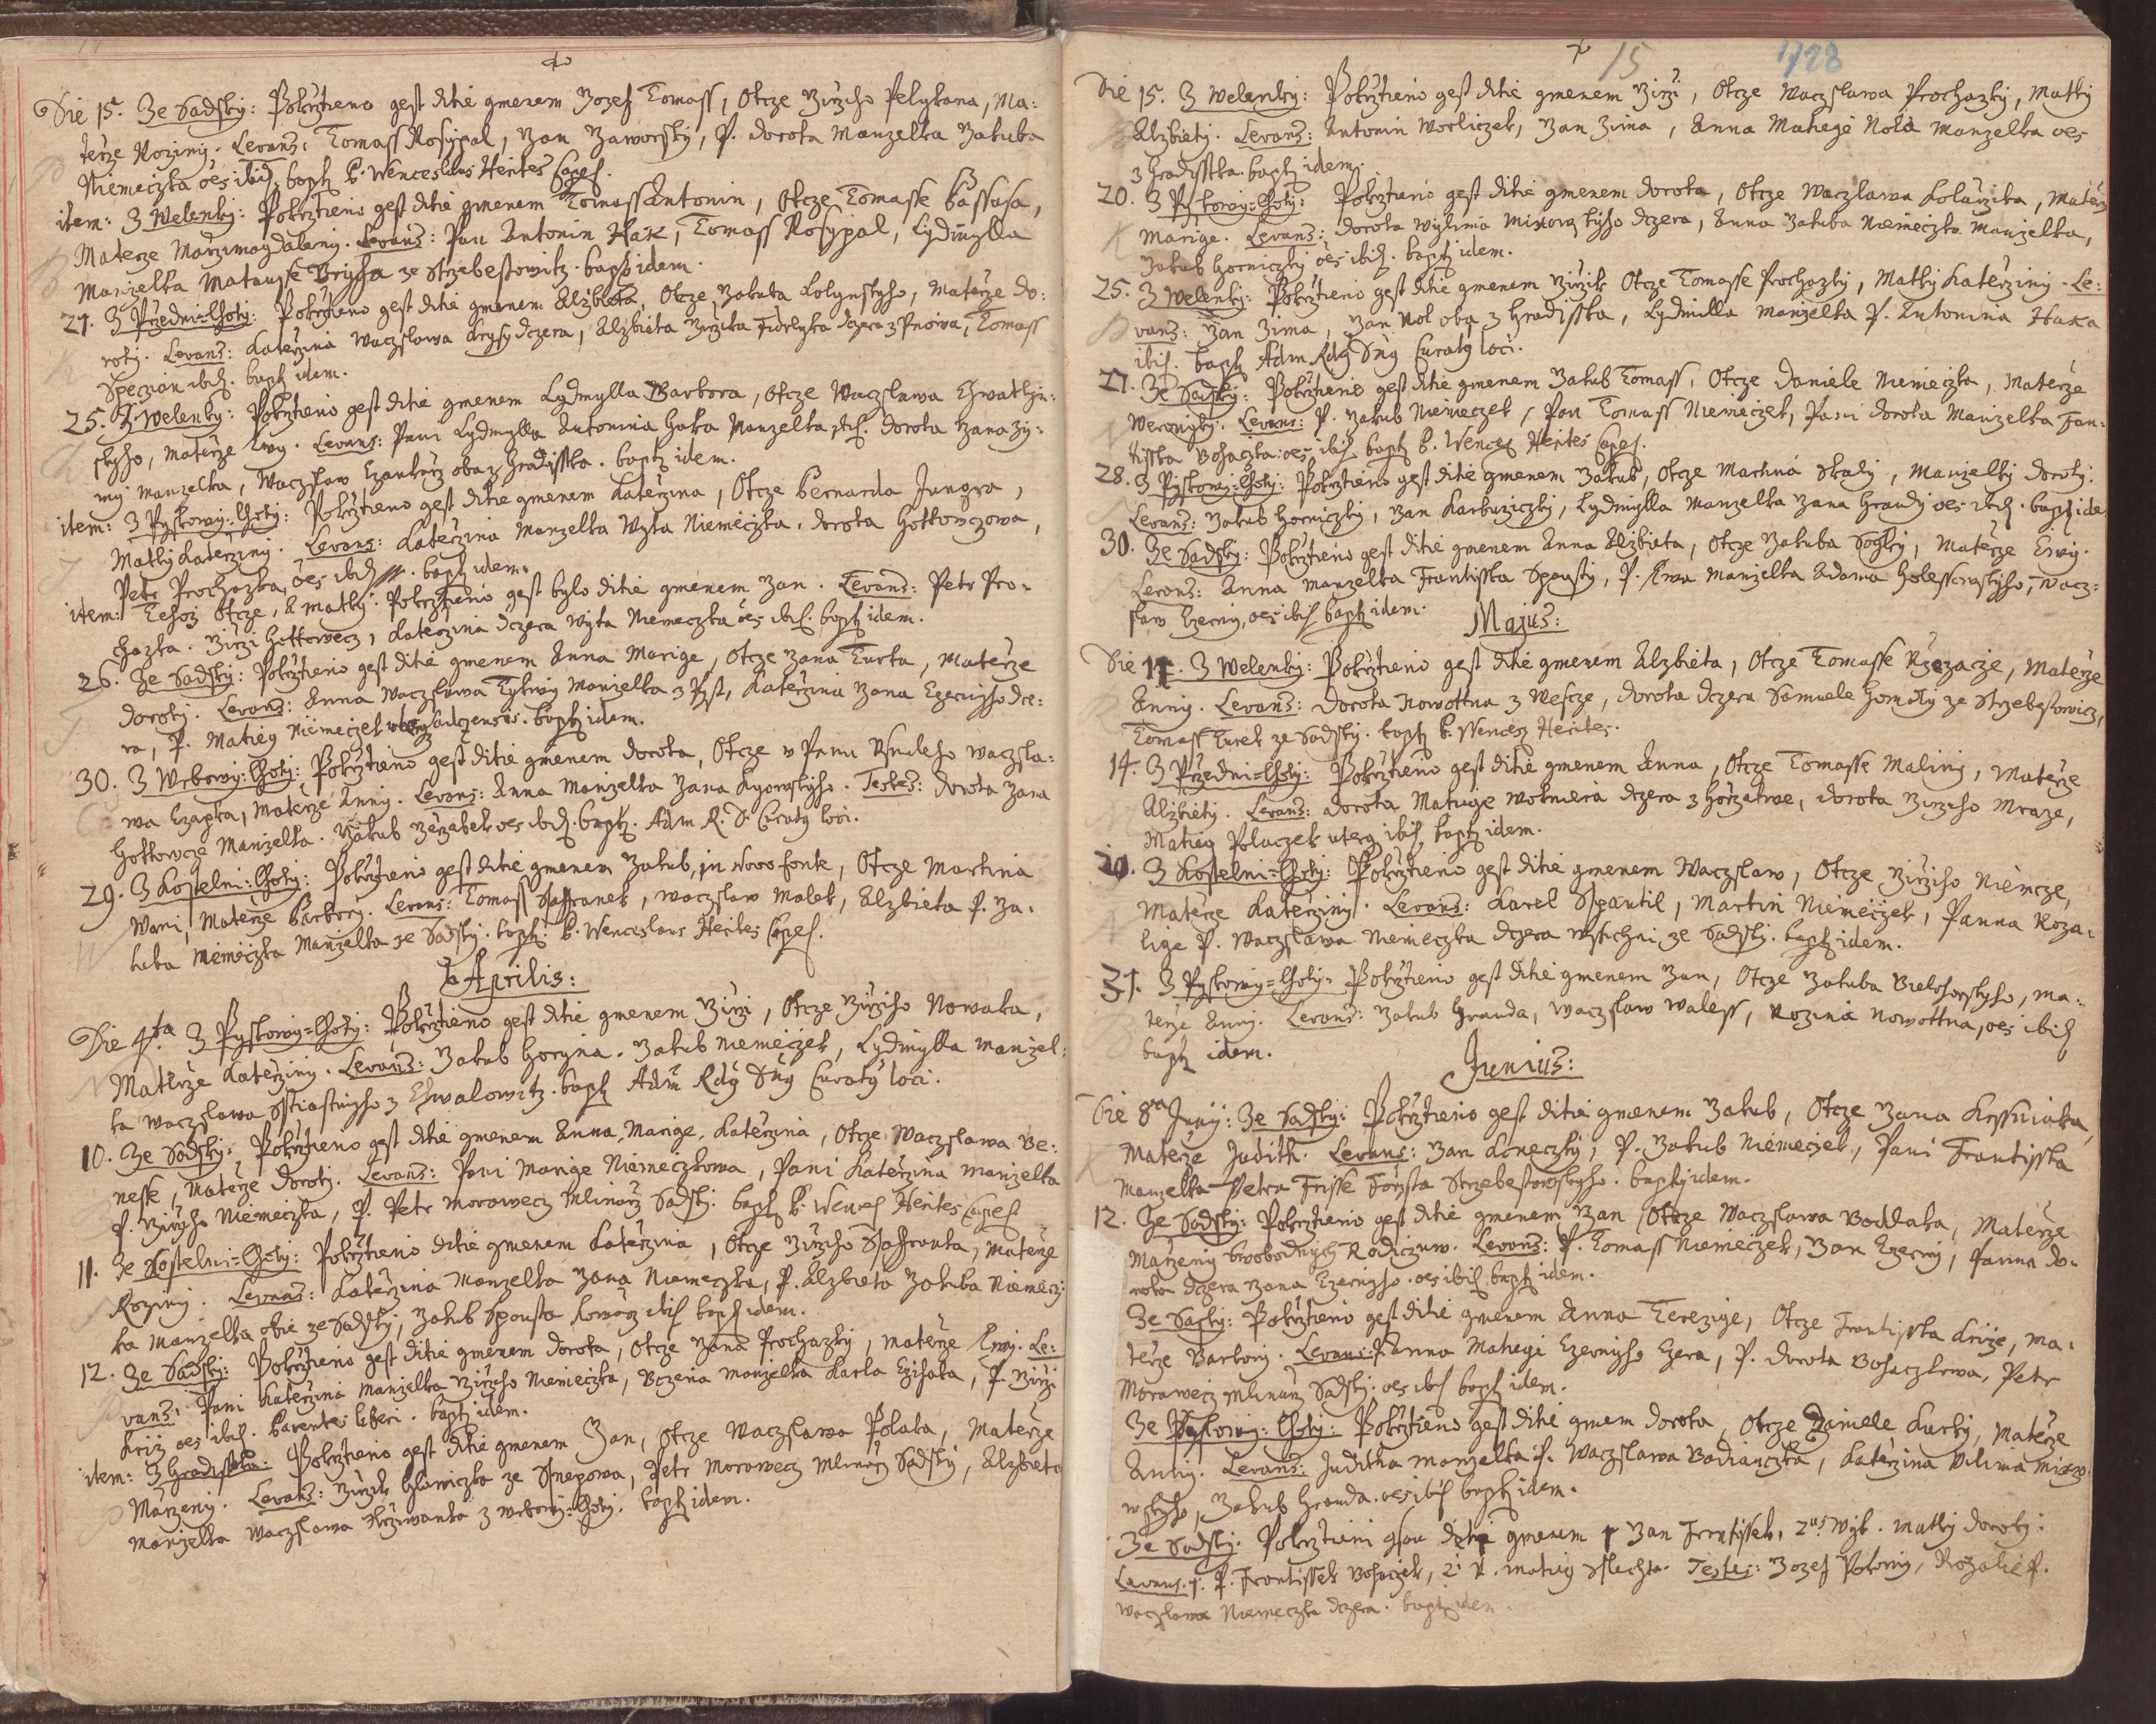 Die 15. Ze Sadsky: Pokrztieno gest ditie gmenem Jozef Tomass, Otcze Jirziho Pelykana, Ma:
terze Roziny. Levans: Tomass Rosypal, Jan Jaworsky, P. Dorota Manzelka Jakuba
Niemeczka oes ibid. bapt. P. Wenceslaus Herites Capel.
item: Z Welenky: Pokrztieno gest ditie gmenem Tomass Antonin, Otcze Tomasse Bassusa,
Materze Marzimagdaleny. Levans: Pan Antonin Hak, Tomass Rosypal, Lydmylla
Manzelka Matausse ze Strzebestowitz. bapt. idem.
21. Z Przedni=Lhoty: Pokrztieno gest ditie gmenem Alzbieta, Otcze Jakuba Kolynskyho, Materze Do:
roty. Levans: Katerzina Waczslawa Krysy dczera, Alzbieta Jirzika dczera z Pniowa, Tomass
ibid. bapt. idem.
25. Z Welenky: Pokrztieno gest ditie gmenem Lydmylla Barbora, Otcze Waczslawa
skyho, Materze Ewy. Levans: Pani Lydmylla Antonina Haka Manzelka, ibid. Dorota Jana Zy:
my manzelka, Waczslaw oba z Hradisska. bapt. idem.
item: Z Pyskowy: Lhoty: Pokrztieno gest ditie gmenem Katerzina, Otcze Bernarda Jungra,
Matky Katerziny. Levans: Katerzina Manzelka Wyta Niemeczka. Dorota Hotkowczowa,
Petr Prochazka, oes ibid. bapt. idem.
item: Tehoz Otcze, a matky: Pokrztieno gest bylo ditie gmenem Jan. Levans: Petr Pro:
chazka. Jirzi Hotkowecz, Katerzina dczera Wyta Niemeczka oes ibid. bapt. idem.
26. Ze Sadsky: Pokrztieno gest ditie gmenem Anna Marige, Otcze Jana Turka, Materze
Doroty. Levans: Anna Waczslawa Manzelka z Pyst, Katerzina Jana Czernyho dcze:
ra, P. Matiey Niemeczek bapt. idem.
30. Z Wrbowy: Lhoty: Pokrztieno gest ditie gmenem Dorota, Otcze Waczsla:
wa Czapka, Materze Anny. Levans: Anna Manzelka Jana Kyowskyho. Testes: Dorota Jana
Hotkowcze Manzelka. Jakub Jerzabek oes ibid. bapt. Adm. R. D. Curaty loci.
29. Z Kostelni=Lhoty: Pokrztieno gest ditie gmenem Jakub, in Novo fonte, Otcze Martina
Wani, Materze Barbory. Levans: Tomass Ssaffranek, Waczslaw Malek, Alzbieta P. Ja:
kuba Niemeczka Manzelka ze Sadsky. bapt. P. Wenceslaus Herites Capel.
Aprilis:
Die 4ta Z Pyskowy=Lhoty: Pokrztieno gest ditie gmenem Jirzi, Otcze Jirziho Nowaka,
Materze Katerziny. Levans: Jakub Horyna. Jakub Niemeczek, Lydmylla manzel:
ka Waczslawa Sstiastnyho z Chwalowitz. bapt. Adm. Rdy Dny Curaty loci.
10. Ze Sadsky: Pokrztieno gest ditie gmenem Anna, Marige, Katerzina, Otcze Waczslawa Be:
nesse, Materze Doroty. Levans: Pani Marige Niemeczkowa, Pani Katerzina manzelka
P. Jirziho Niemeczka, P. Petr Morawecz Mlinarz Sadsky: bapt. P. Wences Herites Capel.
11. Ze Kostelni=Lhoty: Pokrztieno ditie gmenem Katerzina, Otcze Jirziho Ssaffranka, Materze
Roziny. Levans: Katerzina Manzelka Jana Niemeczka, P. Alzbieta Jakuba Niemecz:
ka Manzelka obie ze Sadsky, Jakub Spousta kowarz ibid. bapt. idem.
12. Ze Sadsky: Pokrztieno gest ditie gmenem Dorota, Otcze Jana Prochazky, Materze Ewy. Le:
vans: Pani Katerzina Manzelka Jirziho Niemeczka, manzelka Karla Czihaka, P. Jirzi
Krziz oes ibid. Parentes liberi. bapt. idem.
item: Z Hradisska: Pokrztieno gest ditie gmenem Jan, Otcze Waczslawa Polaka, Materze
Marzeny. Levans: Jirzik Hlawiczka ze Petr Morawecz Mlinarz Sadsky, Alzbieta
manzelka Waczslawa Krziwanka z Wrbowy: Lhoty. bapt. idem.
15 1728
Die 15. Z Welenky: Pokrztieno gest ditie gmenem Jirzi, Otcze Waczslawa Prochazky, Matky
Alzbiety. Levans: Antonin Worliczek, Jan Zima, Anna Matiege Nola Manzelka oes
z Hradisstka. bapt. idem.
20. Z Pyskowy=Lhoty: Pokrztieno gest ditie gmenem Dorota, Otcze Waczlawa Kolarzika, Materz
Marige. Levans: Dorota Wylima dczera, Anna Jakuba Niemeczka Manzelka,
Jakub Horniczky oes ibid. bapt. idem.
25. Z Welenky: Pokrztieno gest ditie gmenem Jirzik Otcze Tomasse Prochazky, Matky Katerziny. Le:
vans: Jan Zima, Jan Nol oba z Hradisska, Lydmilla Manzelka P. Antonina Haka
ibid. bapt. Adm Rdy Dny Curaty loci.
27. Ze Sadsky: Pokrztieno gest ditie gmenem Jakub Tomass, Otcze Daniele Niemeczka, Materze
Weronyky. Levans: P. Jakub Niemeczek, Pan Tomass Niemeczek, Pani Dorota Manzelka Fran:
tisska Bohaczka: oes ibid. bapt. P. Wences Herites Capel.
28. Z Pyskowy=Lhoty: Pokrztieno gest ditie gmenem Jakub, Otcze Martina Skaly, Manzelky Doroty:
Levans: Jakub Horniczky, Jan Karbuziczky, Lydmylla Manzelka Jana Hraudy oes ibid. bapt. ide
30. Ze Sadsky: Pokrztieno gest ditie gmenem Anna Alzbieta, Otcze Jakuba Materze Ewy.
Levans: Anna Manzelka Frantisska Spousty, P. Ewa Manzelka Adama Holessowskyho, Wacz:
slaw Czerny, oes ibid bapt. idem.
Majus:
Die 14. Z Welenky: Pokrztieno gest ditie gmenem Alzbieta, Otcze Tomasse Rzezacze, Materze
Anny. Levans: Dorota Nowottna z Wescze, Dorota dczera Samuele Homoly ze Strzebestowicz,
Tomass Turek ze Sadsky. bapt. P. Wences Herites.
14. Z Przedni=Lhoty: Pokrztieno gest ditie gmenem Anna, Otcze Tomasse Maliny, Materze
Alzbiety. Levans: Dorota Matiege dczera z Horzatwe, Dorota Jirziho Mraze,
Matiey Polaczek uterq ibid. bapt. idem.
20. Z Kostelni=Lhoty: Pokrztieno gest ditie gmenem Waczslaw, Otcze Jirziho Niemcze,
Materze Katerziny. Levans: Karel Martin Niemeczek, Panna Roza:
lige P. Waczslawa Niemeczka dczera wssichni ze Sadsky. bapt. idem.
31. Z Pyskowy=Lhoty: Pokrztieno gest ditie gmenem Jan, Otcze Jakuba Bielohorskyho, Ma:
terze Anny. Levans: Jakub Hrauda, Waczslaw Waless, Rozina Nowottna, oes ibid
bapt. idem.
Junius:
Die 8va Junij: Ze Sadsky: Pokrztieno gest ditie gmenem Jakub, Otcze Jana Kessniaka,
Materze Judith. Levans: Jan Koneczky, P. Jakub Niemeczek, Pani Frantisska
Manzelka Petra Frisse Forssta Strzebestowskyho. bapt. idem.
12. Ze Sadsky: Pokrztieno gest ditie gmenem Jan, Otcze Waczslawa Bodlaka, Materze
Marzeny swobodnych Rodiczuw. Levans: P. Tomass Niemeczek, Jan Czerny, Panna Do:
rota dczera Jana Czernyho. oes ibid. bapt. idem.
Ze Sadsky: Pokrztieno gest ditie gmenem Anna Terezige, Otcze Frantisska Krize, Ma:
terze Barbory. Levans: Anna Matiege Czernyho Czera, P. Dorota Bohaczkowa, Petr
Morawecz Mlinarz Sadsky: oes ibid bapt. idem.
Ze Pyskowy: Lhoty: Pokrztieno gest ditie gmenem Dorota, Otcze Daniele Kurky, Materze
Anny. Levans: Juditha manzelka P. Waczslawa Bodianczka, Katerzina Wilima
wskyho, Jakub Hrauda. oes ibid bapt. idem.
Ze Sadsky: Pokrztieni gsou ditki gmenem 1 Jan Frantissek, 2us Wyt. Matky Doroty:
Levans. 1. P. Frantissek Bohaczek, 2. P. Matiey Sslechta. Testes: Jozef Pokorny, Rozalie P.
Waczslawa Niemeczka dczera. bapt. idem.